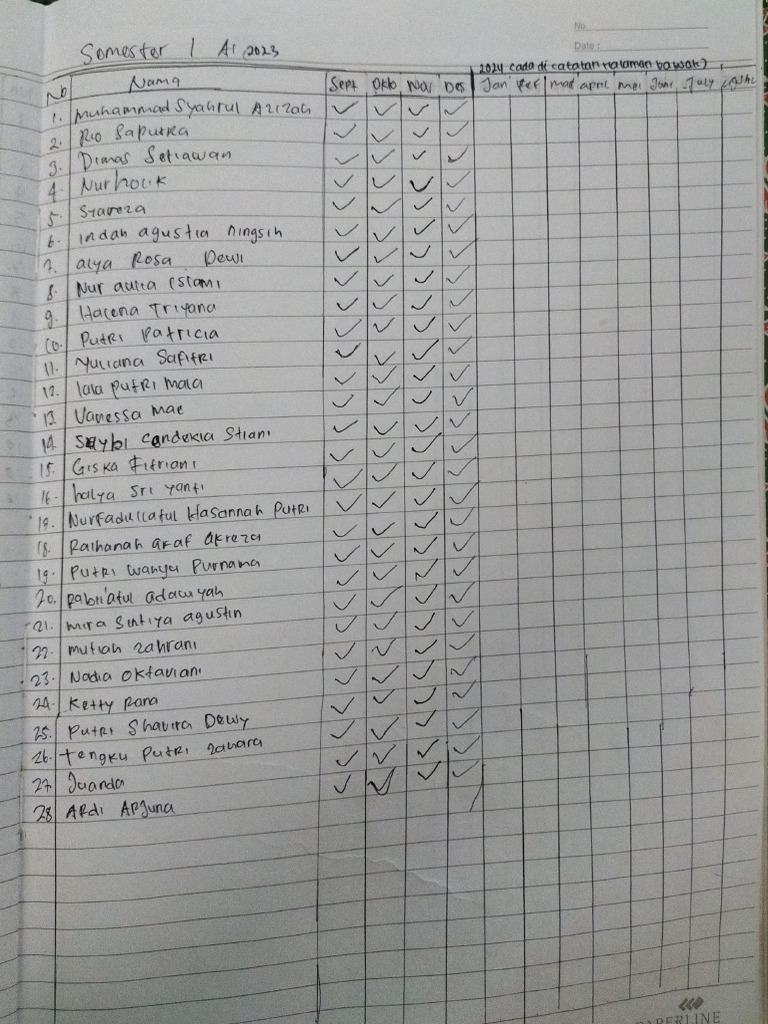 No.
Date :
Semester 1 A1 2023
2024 (ada di catatan halaman bawah)
No Nama Sept Okto Nov Des Jan Feb mar april mei Juni July
1. Muhammad Syahrul Azizah ✓ ✓ ✓ ✓
2. Rio Saputra ✓ ✓ ✓ ✓
3. Dimas Setiawan ✓ ✓ ✓ ✓
4. Nurholik ✓ ✓ ✓ ✓
5. Syareza ✓ ✓ ✓ ✓
6. indah agustia ningsih ✓ ✓ ✓ ✓
7. alya Rosa Dewi ✓ ✓ ✓ ✓
8. Nur aulia Islami ✓ ✓ ✓ ✓
9. Hacena Triyana ✓ ✓ ✓ ✓
10. Putri Patricia ✓ ✓ ✓ ✓
11. Yuliana Safitri ✓ ✓ ✓ ✓
12. lala putri mala ✓ ✓ ✓ ✓
13. Vanessa mae ✓ ✓ ✓ ✓
14. Stiani ✓ ✓ ✓ ✓
15. Giska Fitriani ✓ ✓ ✓ ✓
16. halya sri yanti ✓ ✓ ✓ ✓
17. Nurfadullatul Hasannah Putri ✓ ✓ ✓ ✓
18. Raihanah araf akreza ✓ ✓ ✓ ✓
19. Putri wahyu Purnama ✓ ✓ ✓ ✓
20. Rabi'atul adawiyah ✓ ✓ ✓ ✓
21. mira Sintiya agustin ✓ ✓ ✓ ✓
22. mutiah zahrani ✓ ✓ ✓ ✓
23. Nadia Oktaviani ✓ ✓ ✓ ✓
24. Ketty Rana ✓ ✓ ✓ ✓
25. Putri Shavira Dewy ✓ ✓ ✓ ✓
26. tengku Putri zahara ✓ ✓ ✓ ✓
27. Juanda ✓ ✓ ✓ ✓
28 Ardi Arjuna
PAPERLINE